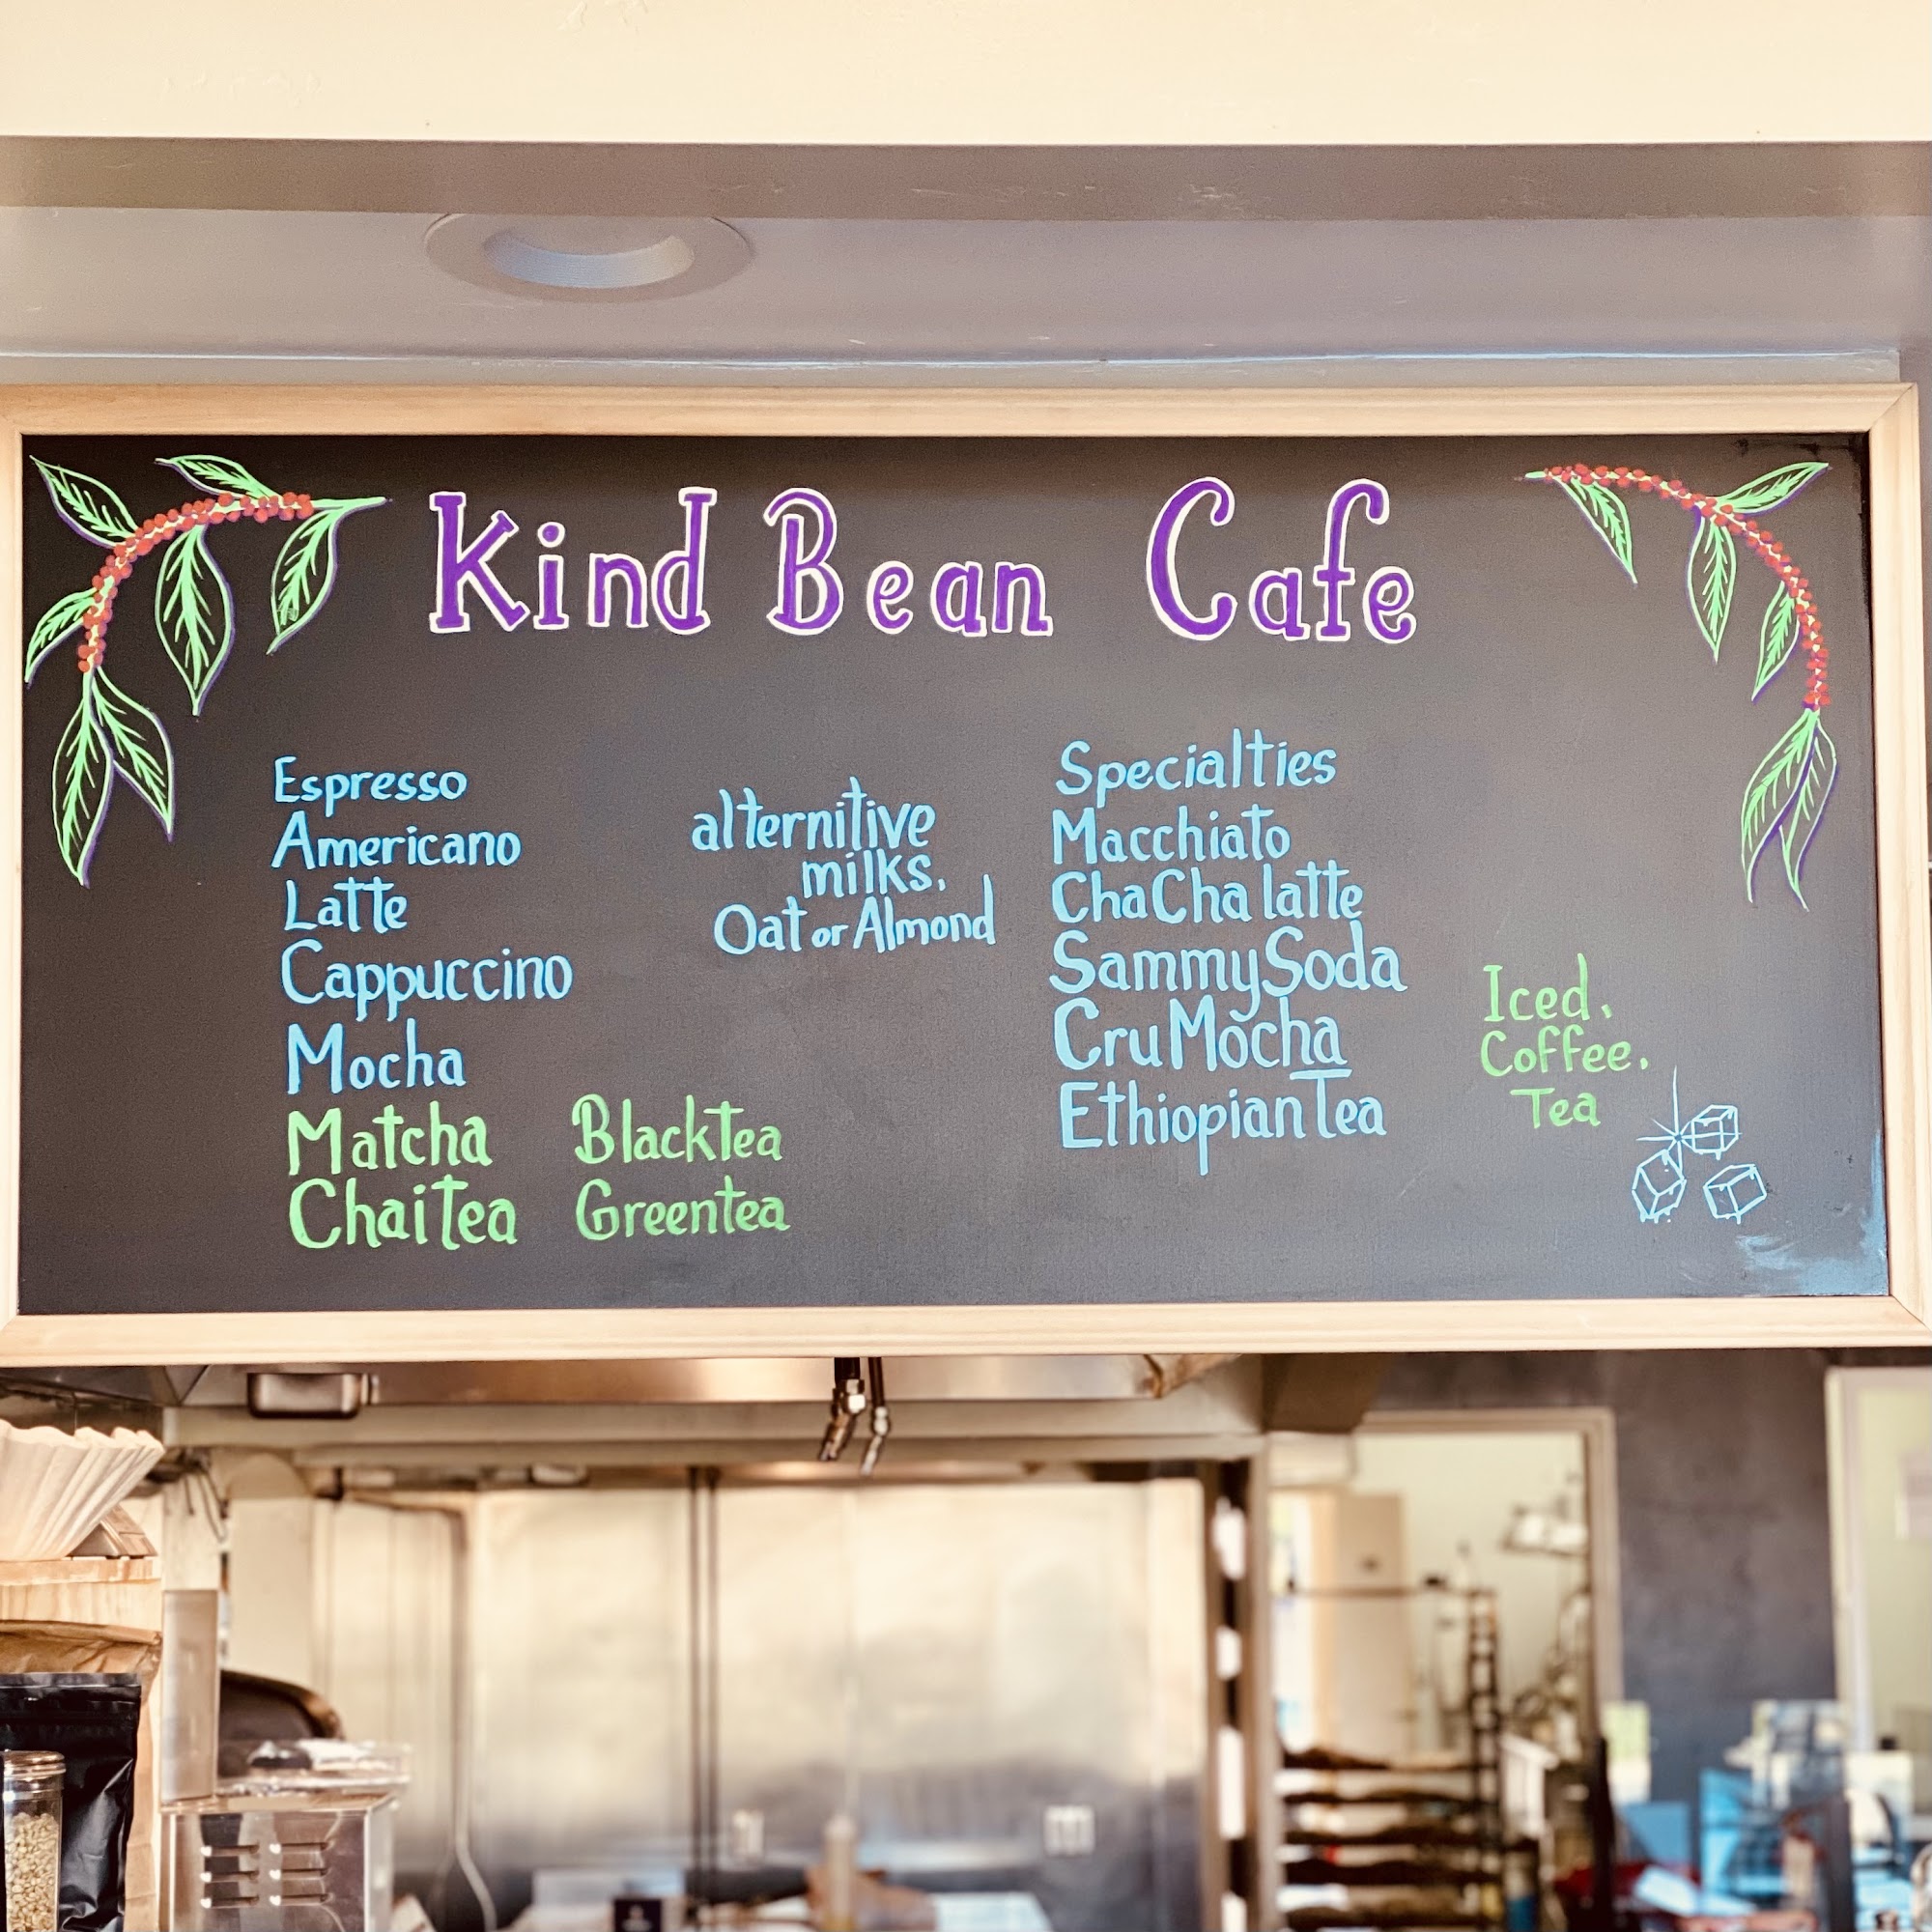 Kind Bean Cafe
Espresso
Americano
Latte
Cappuccino
Mocha
Matcha
Chai Tea
Black Tea
Green tea
alternitive
milks.
Oat or Almond
Specialties
Macchiato
ChaCha latte
Sammy Soda
Cru Mocha
Ethiopian Tea
Iced.
Coffee.
Tea